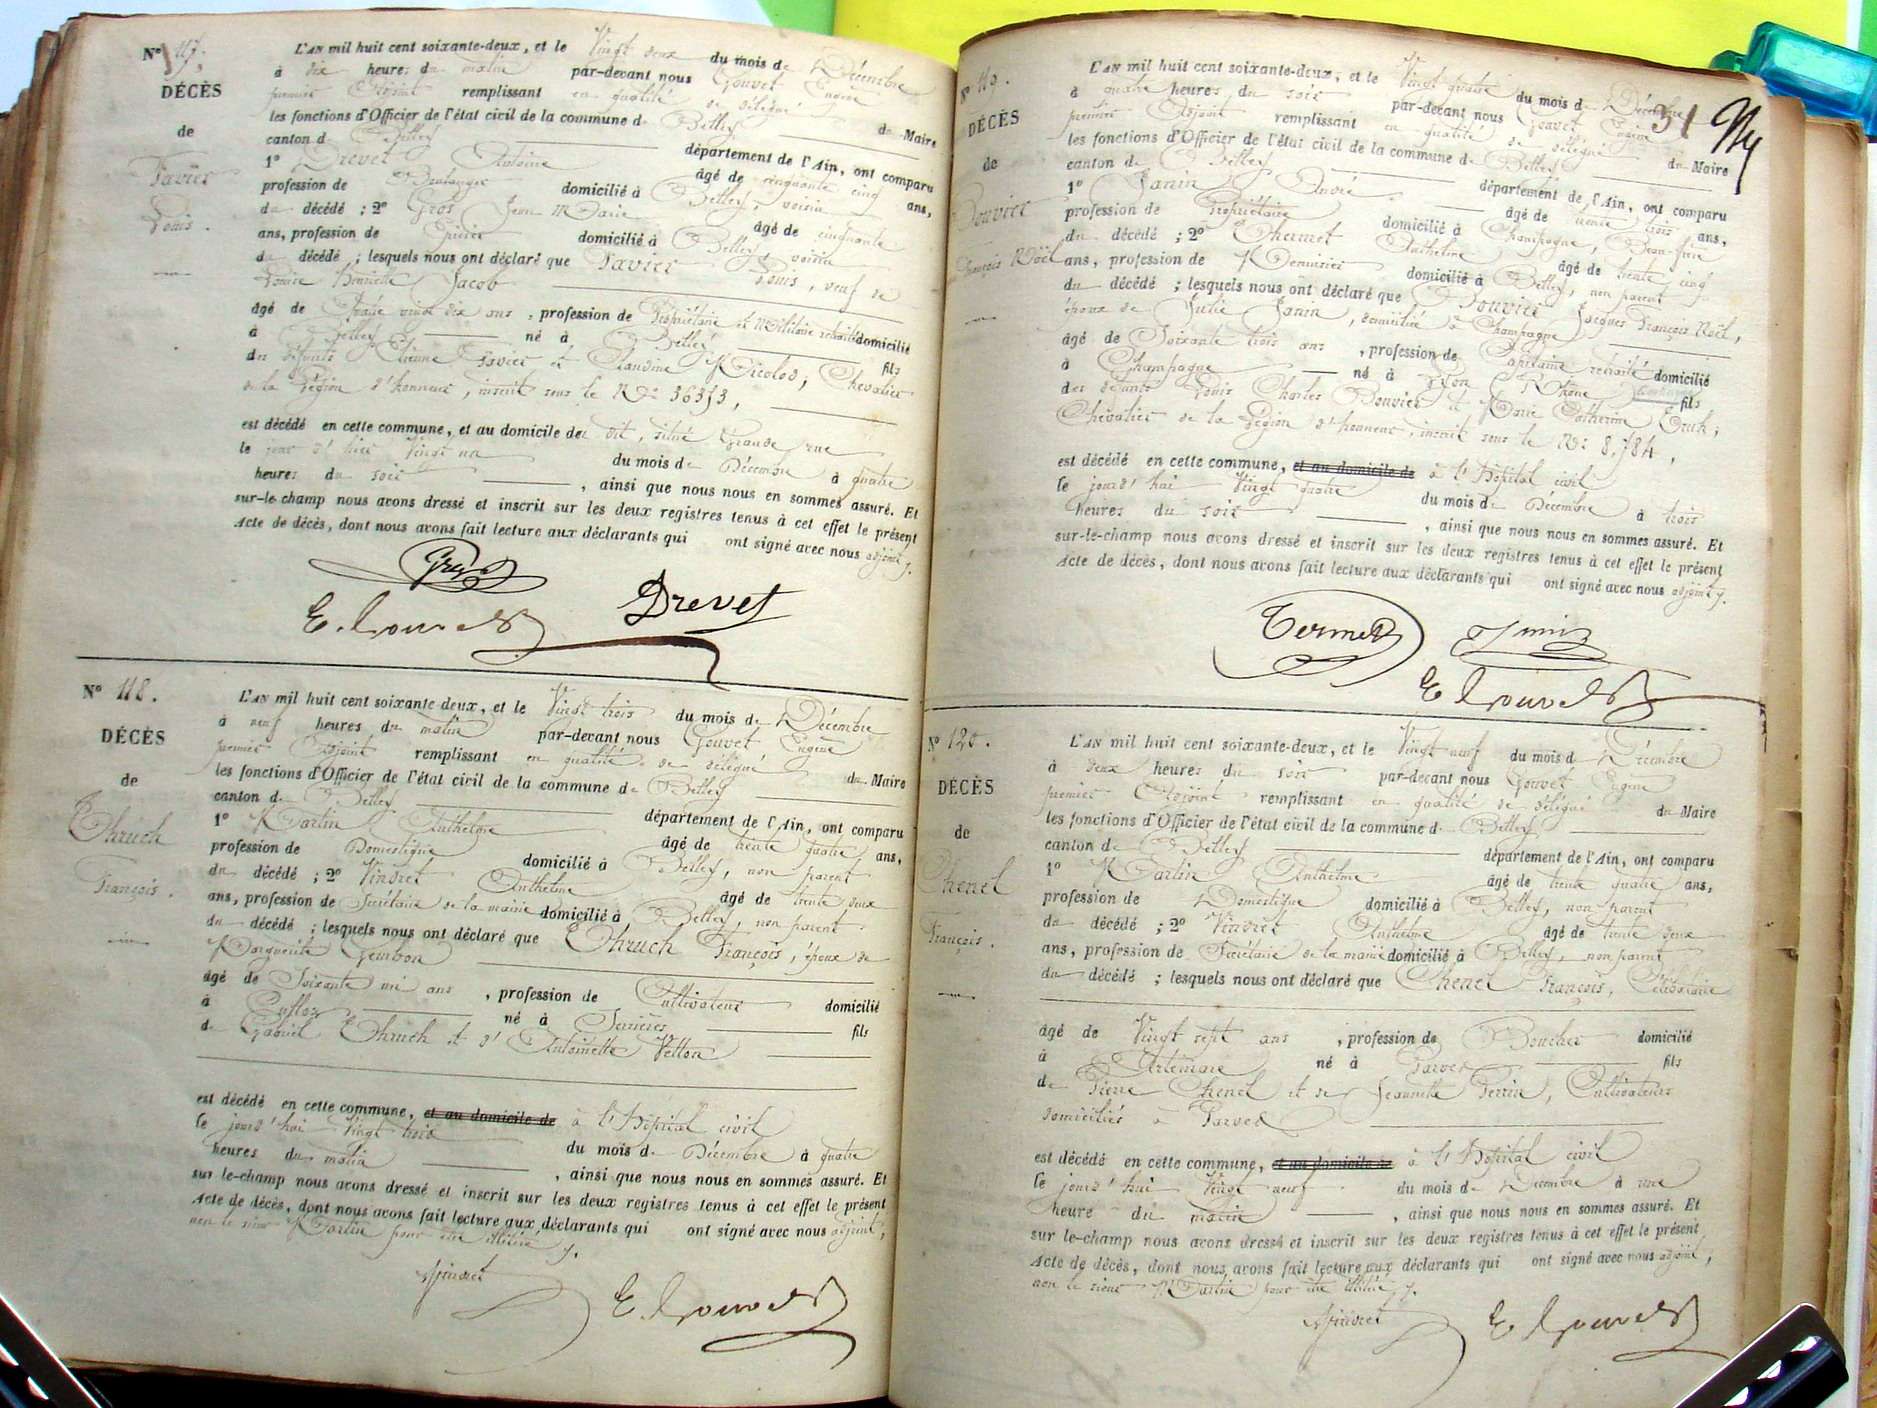 Nº 117.
DÉCÈS
de
Favier
Louis.
L'AN mil huit cent soixante-deux, et le Vingt deux du mois de Décembre
à dix heures du matin par-devant nous Gouvet Eugène
premier Adjoint remplissant en qualité de délégué du Maire
les fonctions d'Officier de l'état civil de la commune de Belley
canton de Belley département de l'Ain, ont comparu
1º Drevet Antoine âgé de cinquante cinq ans,
profession de Boulanger domicilié à Belley, voisin
du décédé ; 2º Gros Jean Marie âgé de cinquante
ans, profession de Epicier domicilié à Belley, voisin
du décédé ; lesquels nous ont déclaré que Favier Louis, veuf de
Louise Henriette Jacob
âgé de Quatre vingt dix ans, profession de Propriétaire et Militaire retraité domicilié
à Belley né à Belley fils
des défunts Etienne Favier et Claudine Nicolod; Chevalier
de la Légion d'honneur, inscrit sous le Nº 36353,
est décédé en cette commune, et au domicile du dit, situé Grande rue
le jour d'hier Vingt un du mois de Décembre à quatre
heures du soir , ainsi que nous nous en sommes assuré. Et
sur-le champ nous avons dressé et inscrit sur les deux registres tenus à cet effet le présent
Acte de décès, dont nous avons fait lecture aux déclarants qui ont signé avec nous adjoint
Gros
E. Gouvet Drevet
Nº 118.
DÉCÈS
de
Chruch
François.
L'AN mil huit cent soixante deux, et le Vingt trois du mois de Décembre
à neuf heures du matin par-devant nous Gouvet Eugène
premier Adjoint remplissant en qualité de délégué du Maire
les fonctions d'Officier de l'état civil de la commune de Belley
canton de Belley département de l'Ain, ont comparu
1º Martin Anthelme âgé de trente quatre ans,
profession de Domestique domicilié à Belley, non parent
du décédé ; 2º Vindret Anthelme âgé de trente deux
ans, profession de Secrétaire de la mairie domicilié à Belley, non parent
du décédé ; lesquels nous ont déclaré que Chruch François, époux de
Marguerite Genbon
âgé de Soixante un ans, profession de Cultivateur domicilié
à né à Serrières fils
de Gabriel Chruch et d'Antoinette Vetton
est décédé en cette commune, et au domicile de à l'Hôpital civil
le jourd'hui Vingt trois du mois de Décembre à quatre
heures du matin , ainsi que nous nous en sommes assuré. Et
sur le-champ nous avons dressé et inscrit sur les deux registres tenus à cet effet le présent
Acte de décès, dont nous avons fait lecture aux déclarants qui ont signé avec nous adjoint,
non le sieur Martin pour être illitéré
Vindret E. Gouvet
31
Nº 119.
DÉCÈS
de
Bouvier
François Noël
L'AN mil huit cent soixante-deux, et le Vingt quatre du mois de Décembre
à quatre heures du soir par-devant nous Gouvet Eugène
premier Adjoint remplissant en qualité de délégué du Maire
les fonctions d'Officier de l'état civil de la commune de Belley
canton de Belley département de l'Ain, ont comparu
1º Janin André âgé de trente trois ans,
profession de Propriétaire domicilié à Champagne, Beau-frère
du décédé ; 2º Thermet Anthelme âgé de trente cinq
ans, profession de Menuisier domicilié à Belley, non parent
du décédé ; lesquels nous ont déclaré que Bouvier Jacques François Noël,
époux de Julie Janin, domicilié à Champagne
âgé de Soixante trois ans, profession de Capitaine retraité domicilié
à Champagne né à Lyon (Rhône) fils
des défunts Louis Charles Bouvier et Marie Catherine Cruch;
Chevalier de la Légion d'honneur, inscrit sous le Nº 8,784,
est décédé en cette commune, et au domicile de à l'Hôpital civil
le jourd'hui Vingt quatre du mois de Décembre à trois
heures du soir , ainsi que nous nous en sommes assuré. Et
sur-le-champ nous avons dressé et inscrit sur les deux registres tenus à cet effet le présent
Acte de décès, dont nous avons fait lecture aux déclarants qui ont signé avec nous adjoint
Termet Janin
E Gouvet
Nº 120.
DÉCÈS
de
Chenel
François.
L'AN mil huit cent soixante-deux, et le Vingt neuf du mois de Décembre
à deux heures du soir par-devant nous Gouvet Eugène
premier Adjoint remplissant en qualité de délégué du Maire
les fonctions d'Officier de l'état civil de la commune de Belley
canton de Belley département de l'Ain, ont comparu
1º Martin Anthelme âgé de trente quatre ans,
profession de Domestique domicilié à Belley, non parent
du décédé ; 2º Vindret Anthelme âgé de trente deux
ans, profession de Secrétaire de la mairie domicilié à Belley, non parent
du décédé ; lesquels nous ont déclaré que Chenel François, Célibataire
âgé de Vingt sept ans, profession de Boucher domicilié
à Artemare né à Parves fils
de Pierre Chenel et de Jeannette Perrin, Cultivateurs
domiciliés à Parves
est décédé en cette commune, et au domicile de à l'Hôpital civil
le jourd'hui Vingt neuf du mois de Décembre à une
heure du matin , ainsi que nous nous en sommes assuré. Et
sur le-champ nous avons dressé et inscrit sur les deux registres tenus à cet effet le présent
Acte de décès, dont nous avons fait lecture aux déclarants qui ont signé avec nous adjoint,
non le sieur Martin pour être illitéré
Vindret E. Gouvet